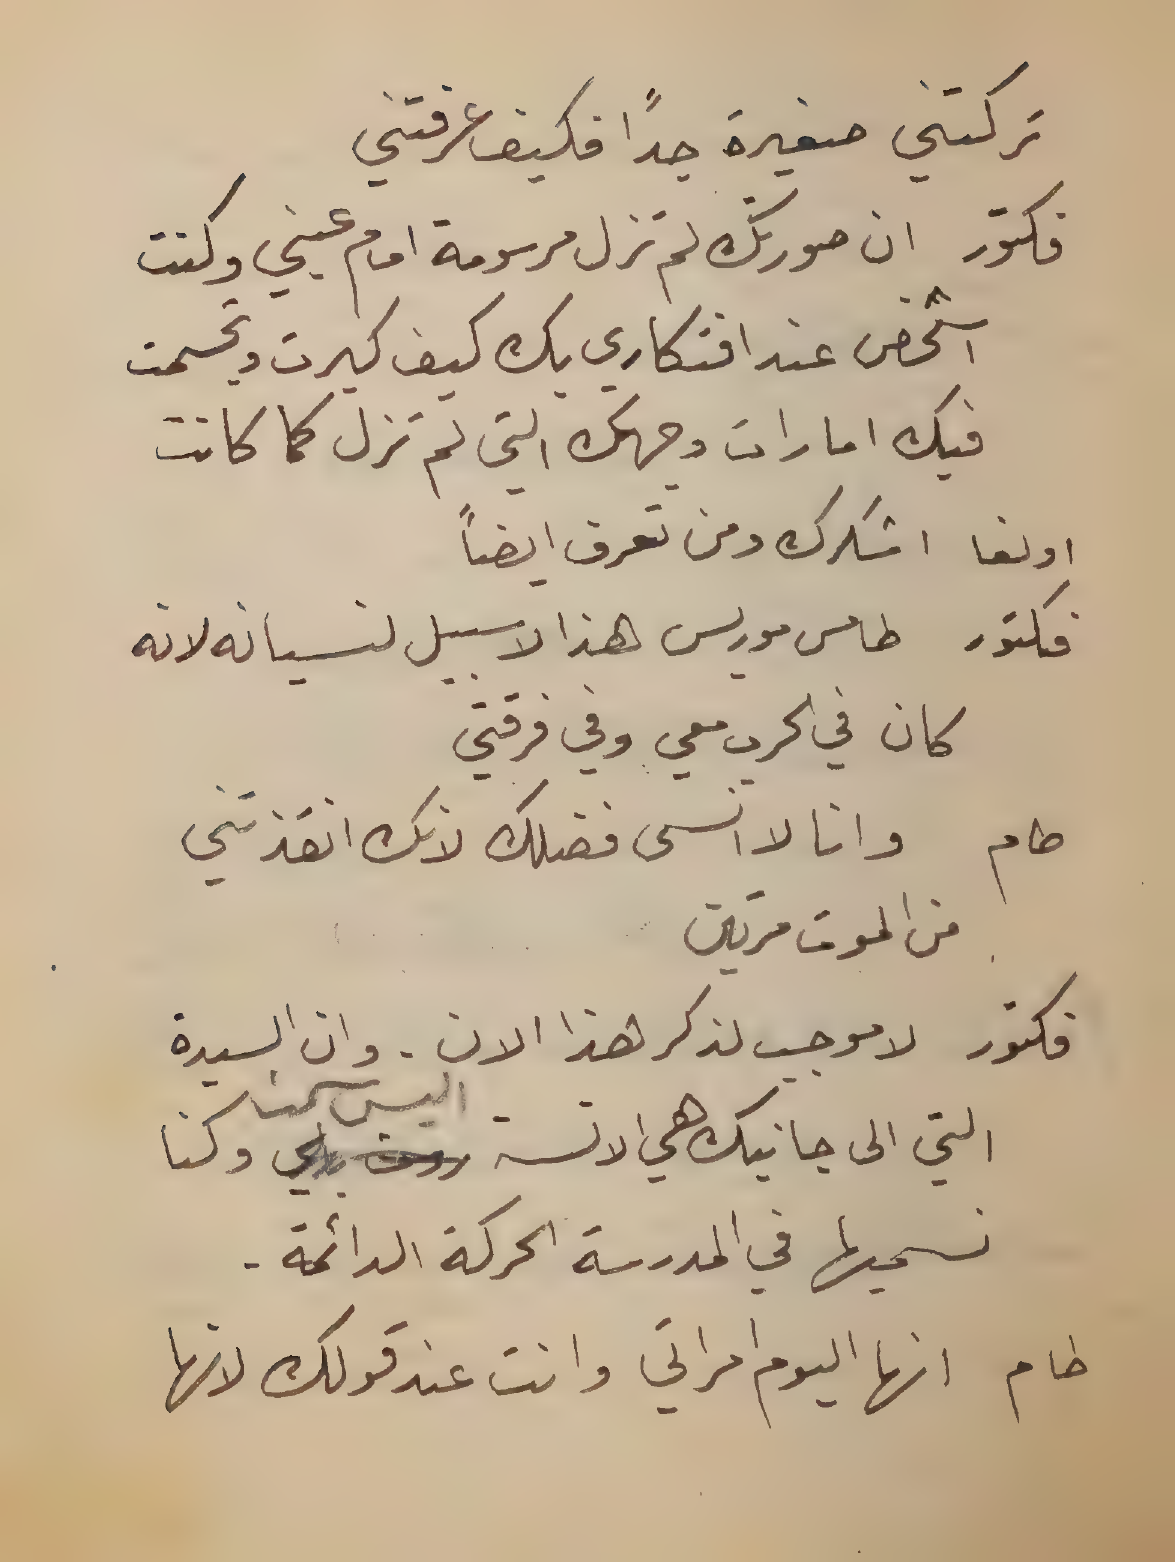 تركتني صغيرة جداً فكيف عرفتني
فكتور ان صورتك لم تزل مرسومة امام عيني وكنت
اشخص عند افتكاري بك كيف كبرت وتجسمت
فيك امارات وجهك التي لم تزل كما كانت
اولغا اشكرك ومن تعرف ايضاً
فكتور طامس موريس هذا لا سبيل لنسيانه لانه
كان في الحرب معي وفي فرقتي
طام وانا لا انسى فضلك لانك انقذتني
من الموت مرتين
فكتور لا موجب لذكر هذا الان . وان السيدة
اليس
التي الى جانبك هي الانسة وكنا
نسميها في المدرسة الحركة الدائمة .
طام انها اليوم امراتي وانت عند قولك لانها